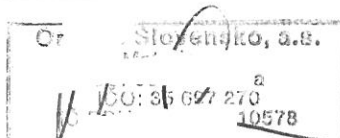 Or Slovensko, a.s.
IČO: 35 697 270
10578